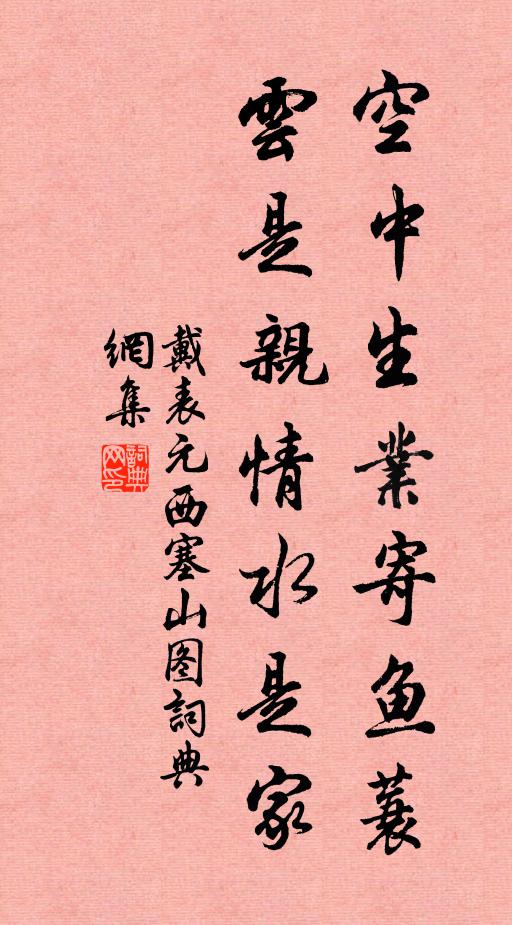 空中生業寄鱼蓑
雲是親情水是家
戴表元西塞山图詞典
網集
詞典网印